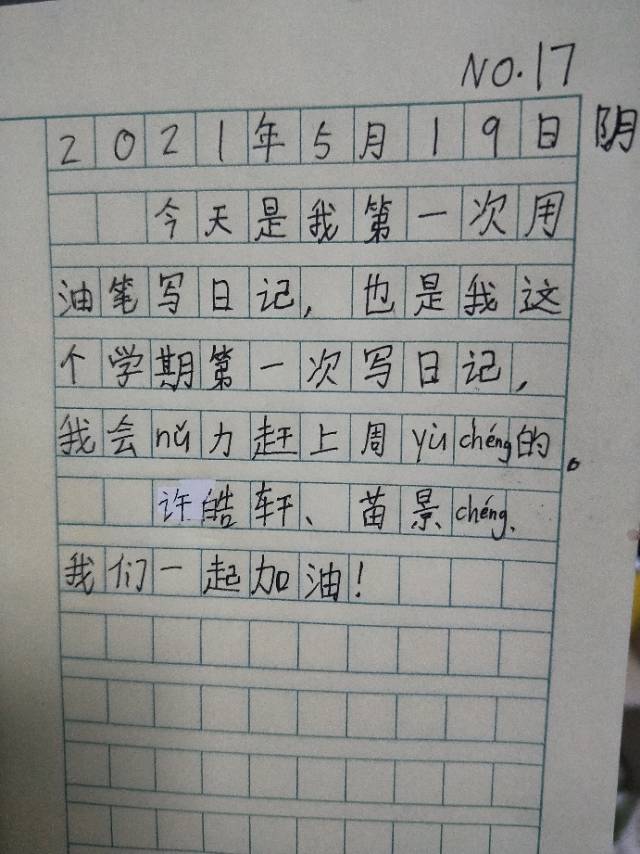 NO.17
2021年5月19日 阴
今天是我第一次用
油笔写日记，也是我这
个学期第一次写日记，
我会nǔ力赶上周yùchéng的。
许皓轩、苗景chéng、
我们一起加油！